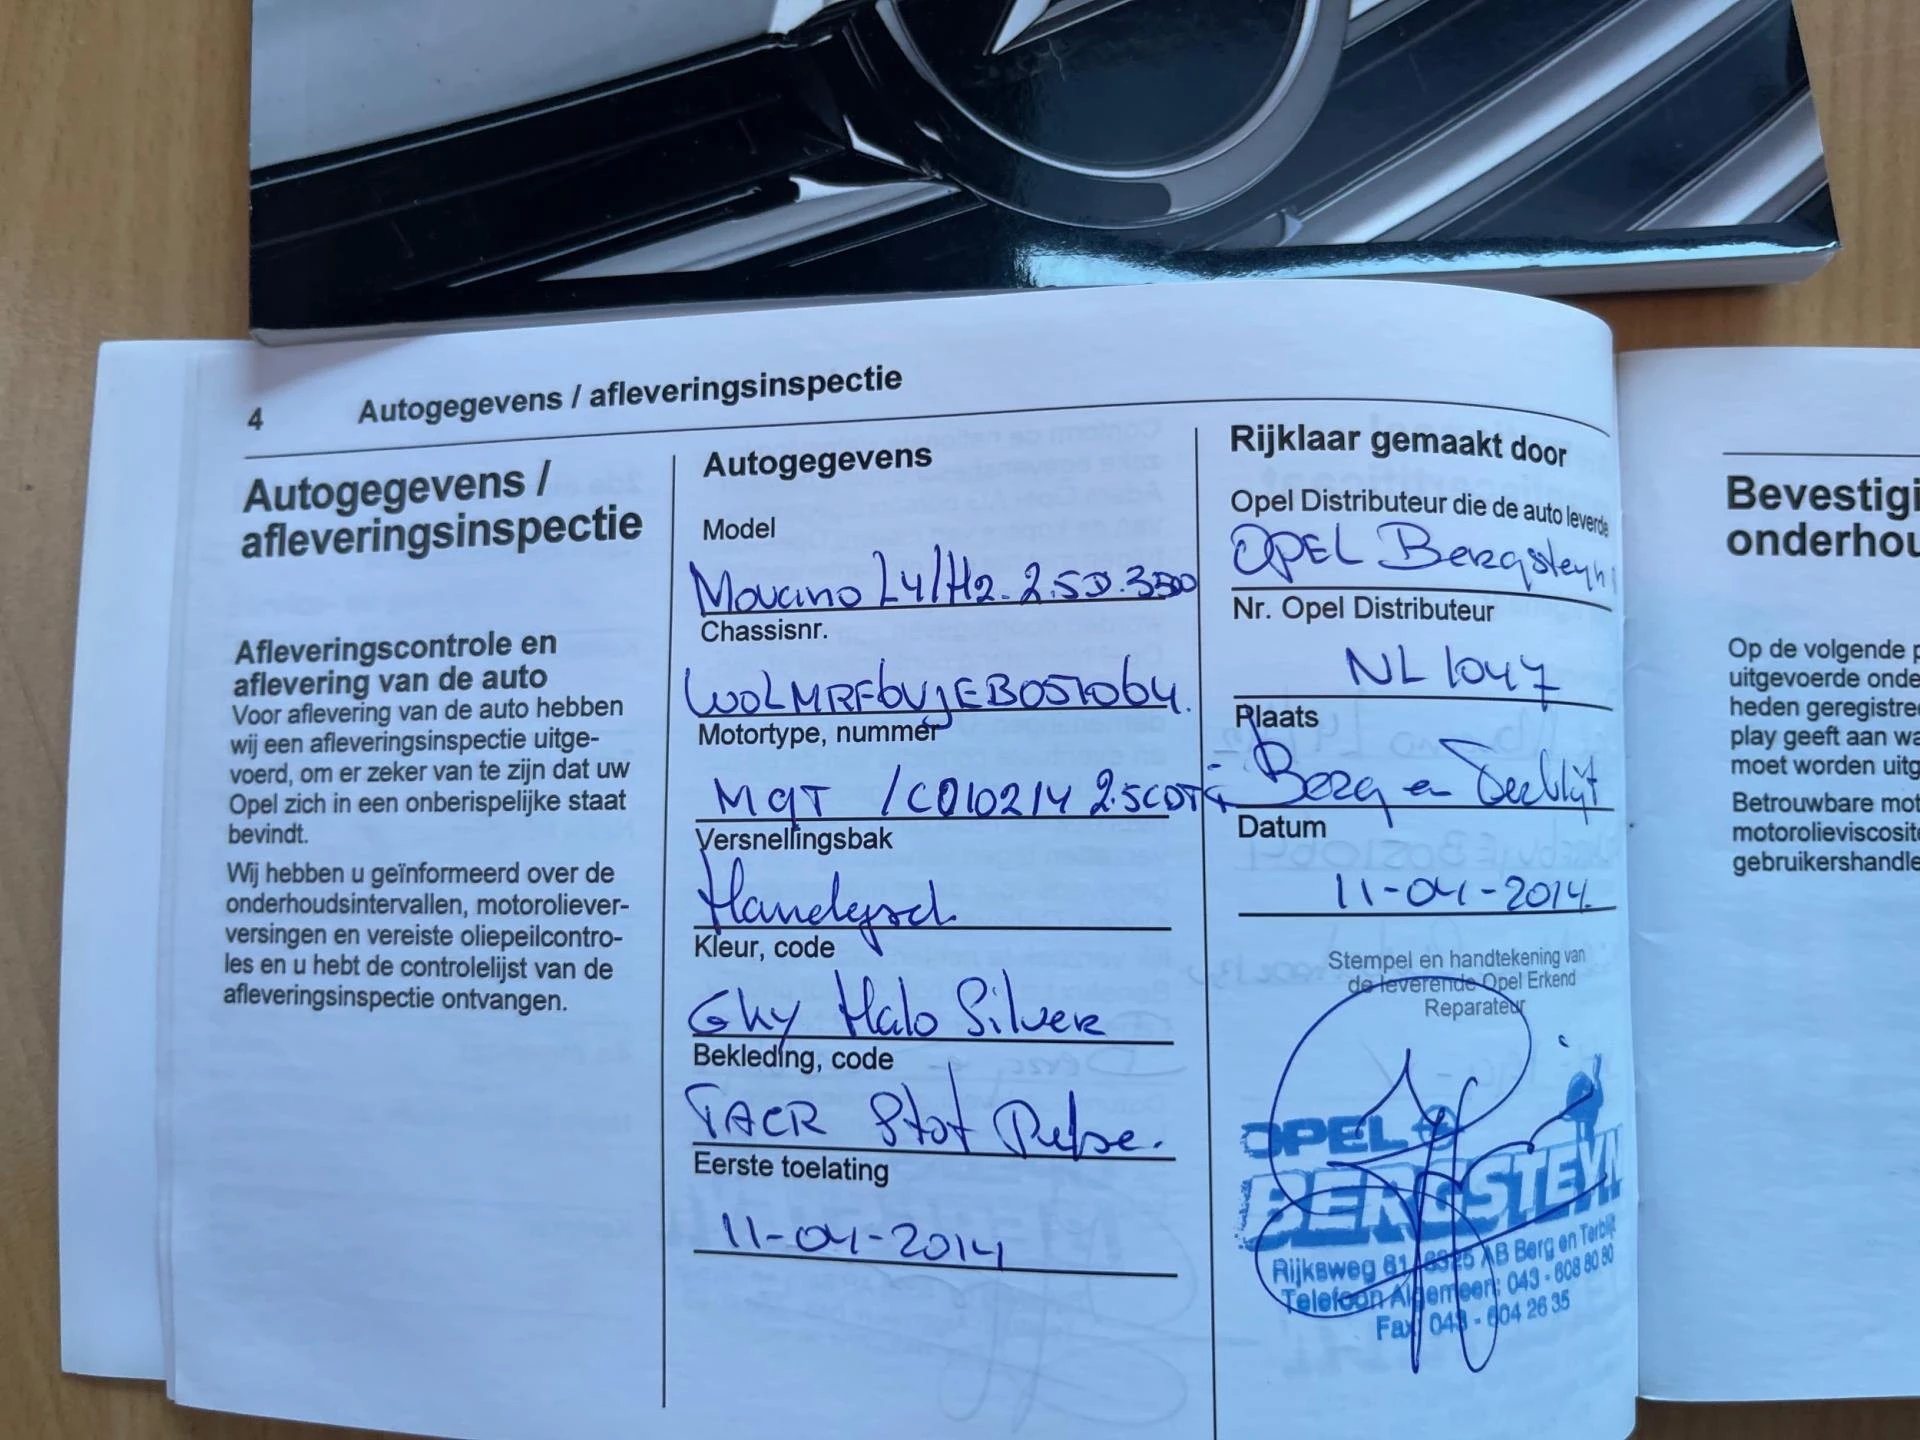 4 Autogegevens / afleveringsinspectie
Autogegevens /
afleveringsinspectie
Afleveringscontrole en
aflevering van de auto
Voor aflevering van de auto hebben
wij een afleveringsinspectie uitge-
voerd, om er zeker van te zijn dat uw
Opel zich in een onberispelijke staat
bevindt.
Wij hebben u geïnformeerd over de
onderhoudsintervallen, motoroliever-
versingen en vereiste oliepeilcontro-
les en u hebt de controlelijst van de
afleveringsinspectie ontvangen.
Autogegevens
Model
Movano L4/H2. 2.5D. 3500
Chassisnr.
W0LMRF6VJEB051064.
Motortype, nummer
M9T / C010214 2.5CDTi
Versnellingsbak
Kleur, code
GKY Halo Silver
Bekleding, code
TACR Stof
Eerste toelating
11-04-2014
Rijklaar gemaakt door
Opel Distributeur die de auto leverde
OPEL Bergsteyn
Nr. Opel Distributeur
NL 1047
Plaats
Berg en Terblijt
Datum
11-04-2014.
Stempel en handtekening van
de leverende Opel Erkend
Reparateur
OPEL
BERGSTEYN
Rijksweg 61, 6325 AB Berg en Terblijt
Telefoon Algemeen: 043 - 608 80 80
Fax: 043 - 604 26 35
Bevestigi
onderhou
Op de volgende p
uitgevoerde onde
heden geregistree
play geeft aan wa
moet worden uitg
Betrouwbare mot
motorolieviscosite
gebruikershandle